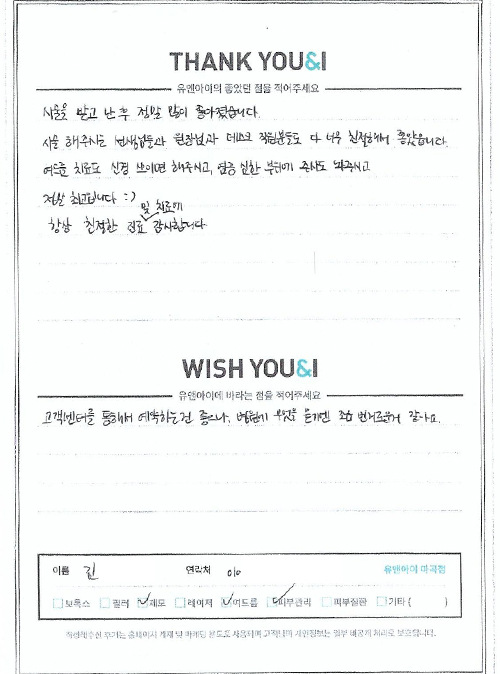 THANK YOU&I
유앤아이의 좋았던 점을 적어주세요
시술을 받고 난 후 정말 많이 좋아졌습니다.
시술 해주시는 선생님들과 원장님과 데스크 직원분들도 다 너무 친절해서 좋았습니다.
여드름 치료도 신경 쓰이면 해주시고, 염증 심한 부위에 주사도 놔주시고
정말 최고입니다 :)
및 치료에
항상 친절한 진료 감사합니다
WISH YOU&I
유앤아이에 바라는 점을 적어주세요
고객센터를 통해서 예약하는건 좋으나, 병원에 무엇을 묻기엔 좀 번거로운거 같아요.
이름 김 연락처 010 유앤아이 마곡점
보톡스 필러 제모 레이저 여드름 피부관리 피부질환 기타 ( )
작성해주신 후기는 홈페이지 게재 및 마케팅 용도로 사용되며 고객님의 개인정보는 일부 비공개 처리로 보호됩니다.